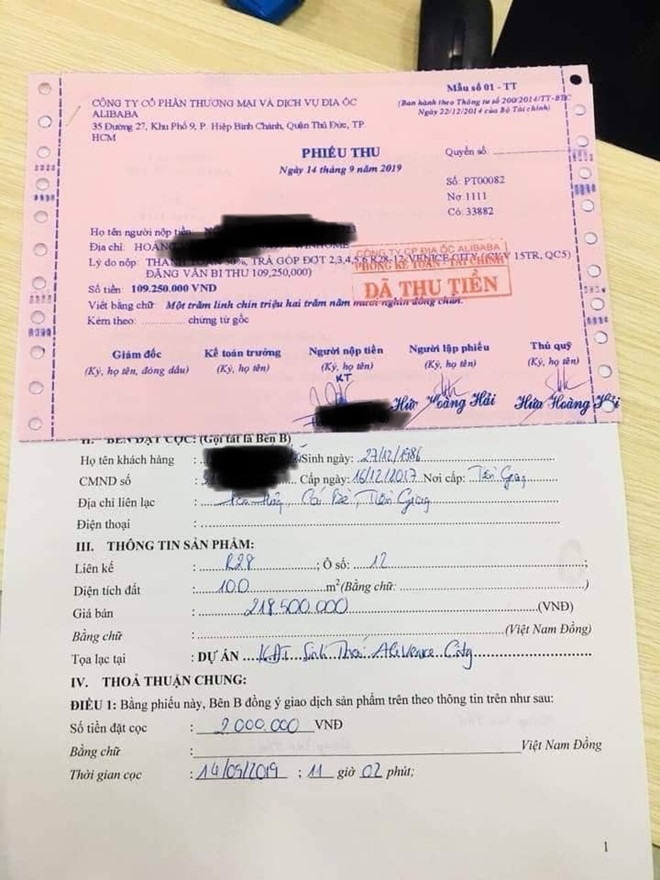 CÔNG TY CỔ PHẦN THƯƠNG MẠI VÀ DỊCH VỤ ĐỊA ỐC
ALIBABA
35 Đường 27, Khu Phố 9, P. Hiệp Bình Chánh, Quận Thủ Đức, TP.
HCM
Mẫu số 01 - TT
(Ban hành theo Thông tư số 200/2014/TT-BTC
Ngày 22/12/2014 của Bộ Tài chính)
PHIẾU THU
Ngày 14 tháng 9 năm 2019
Quyển số
Số: PT00082
Nợ: 1111
Có: 33882
Họ tên người nộp tiền:
Địa chỉ: HOÀNG
Lý do nộp: THANH TOÁN 50%, TRẢ GÓP ĐỢT 2,3,4,5,6 R28-12 VENICE CITY 15TR, QC5)
ĐẶNG VĂN BI THU 109,250,000)
CÔNG TY CP ĐỊA ỐC ALIBABA
PHÒNG KẾ TOÁN - TÀI CHÍNH
ĐÃ THU TIỀN
Số tiền: 109.250.000 VND
Viết bằng chữ: Một trăm linh chín triệu hai trăm năm mươi nghìn đồng chẵn.
Kèm theo: ............ chứng từ gốc
Giám đốc Kế toán trưởng Người nộp tiền Người lập phiếu Thủ quỹ
(Ký, họ tên, đóng dấu) (Ký, họ tên) (Ký, họ tên) (Ký, họ tên) (Ký, họ tên)
KT
Hứa Hoàng Hải Hứa Hoàng Hải
II. BÊN ĐẶT CỌC: (Gọi tắt là Bên B)
Họ tên khách hàng : Sinh ngày: 27/12/1986
CMND số : Cấp ngày: 16/12/2017 Nơi cấp: Tiền Giang
Địa chỉ liên lạc : Cái Bè, Tiền Giang
Điện thoại :
III. THÔNG TIN SẢN PHẨM:
Liên kế : R28 ; Ô số: 12 ;
Diện tích đất : 100 m² (Bằng chữ: )
Giá bán : 218.500.000 (VNĐ)
Bằng chữ : (Việt Nam Đồng)
Tọa lạc tại : DỰ ÁN KĐT Sinh Thái Ali Venice City
IV. THOẢ THUẬN CHUNG:
ĐIỀU 1: Bằng phiếu này, Bên B đồng ý giao dịch sản phẩm trên theo thông tin trên như sau:
Số tiền đặt cọc : 2.000.000 VNĐ
Bằng chữ : Việt Nam Đồng
Thời gian cọc : 14/09/2019 ; 11 giờ 02 phút;
1